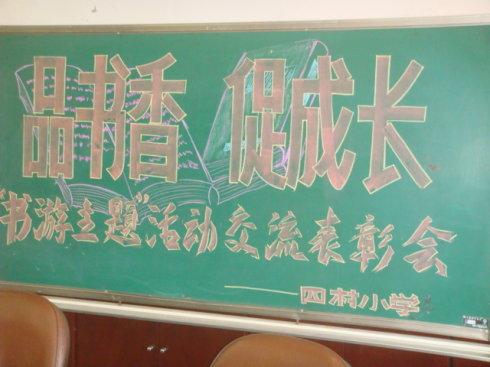 品书香 促成长
"书游主题"活动交流表彰会
——四村小学